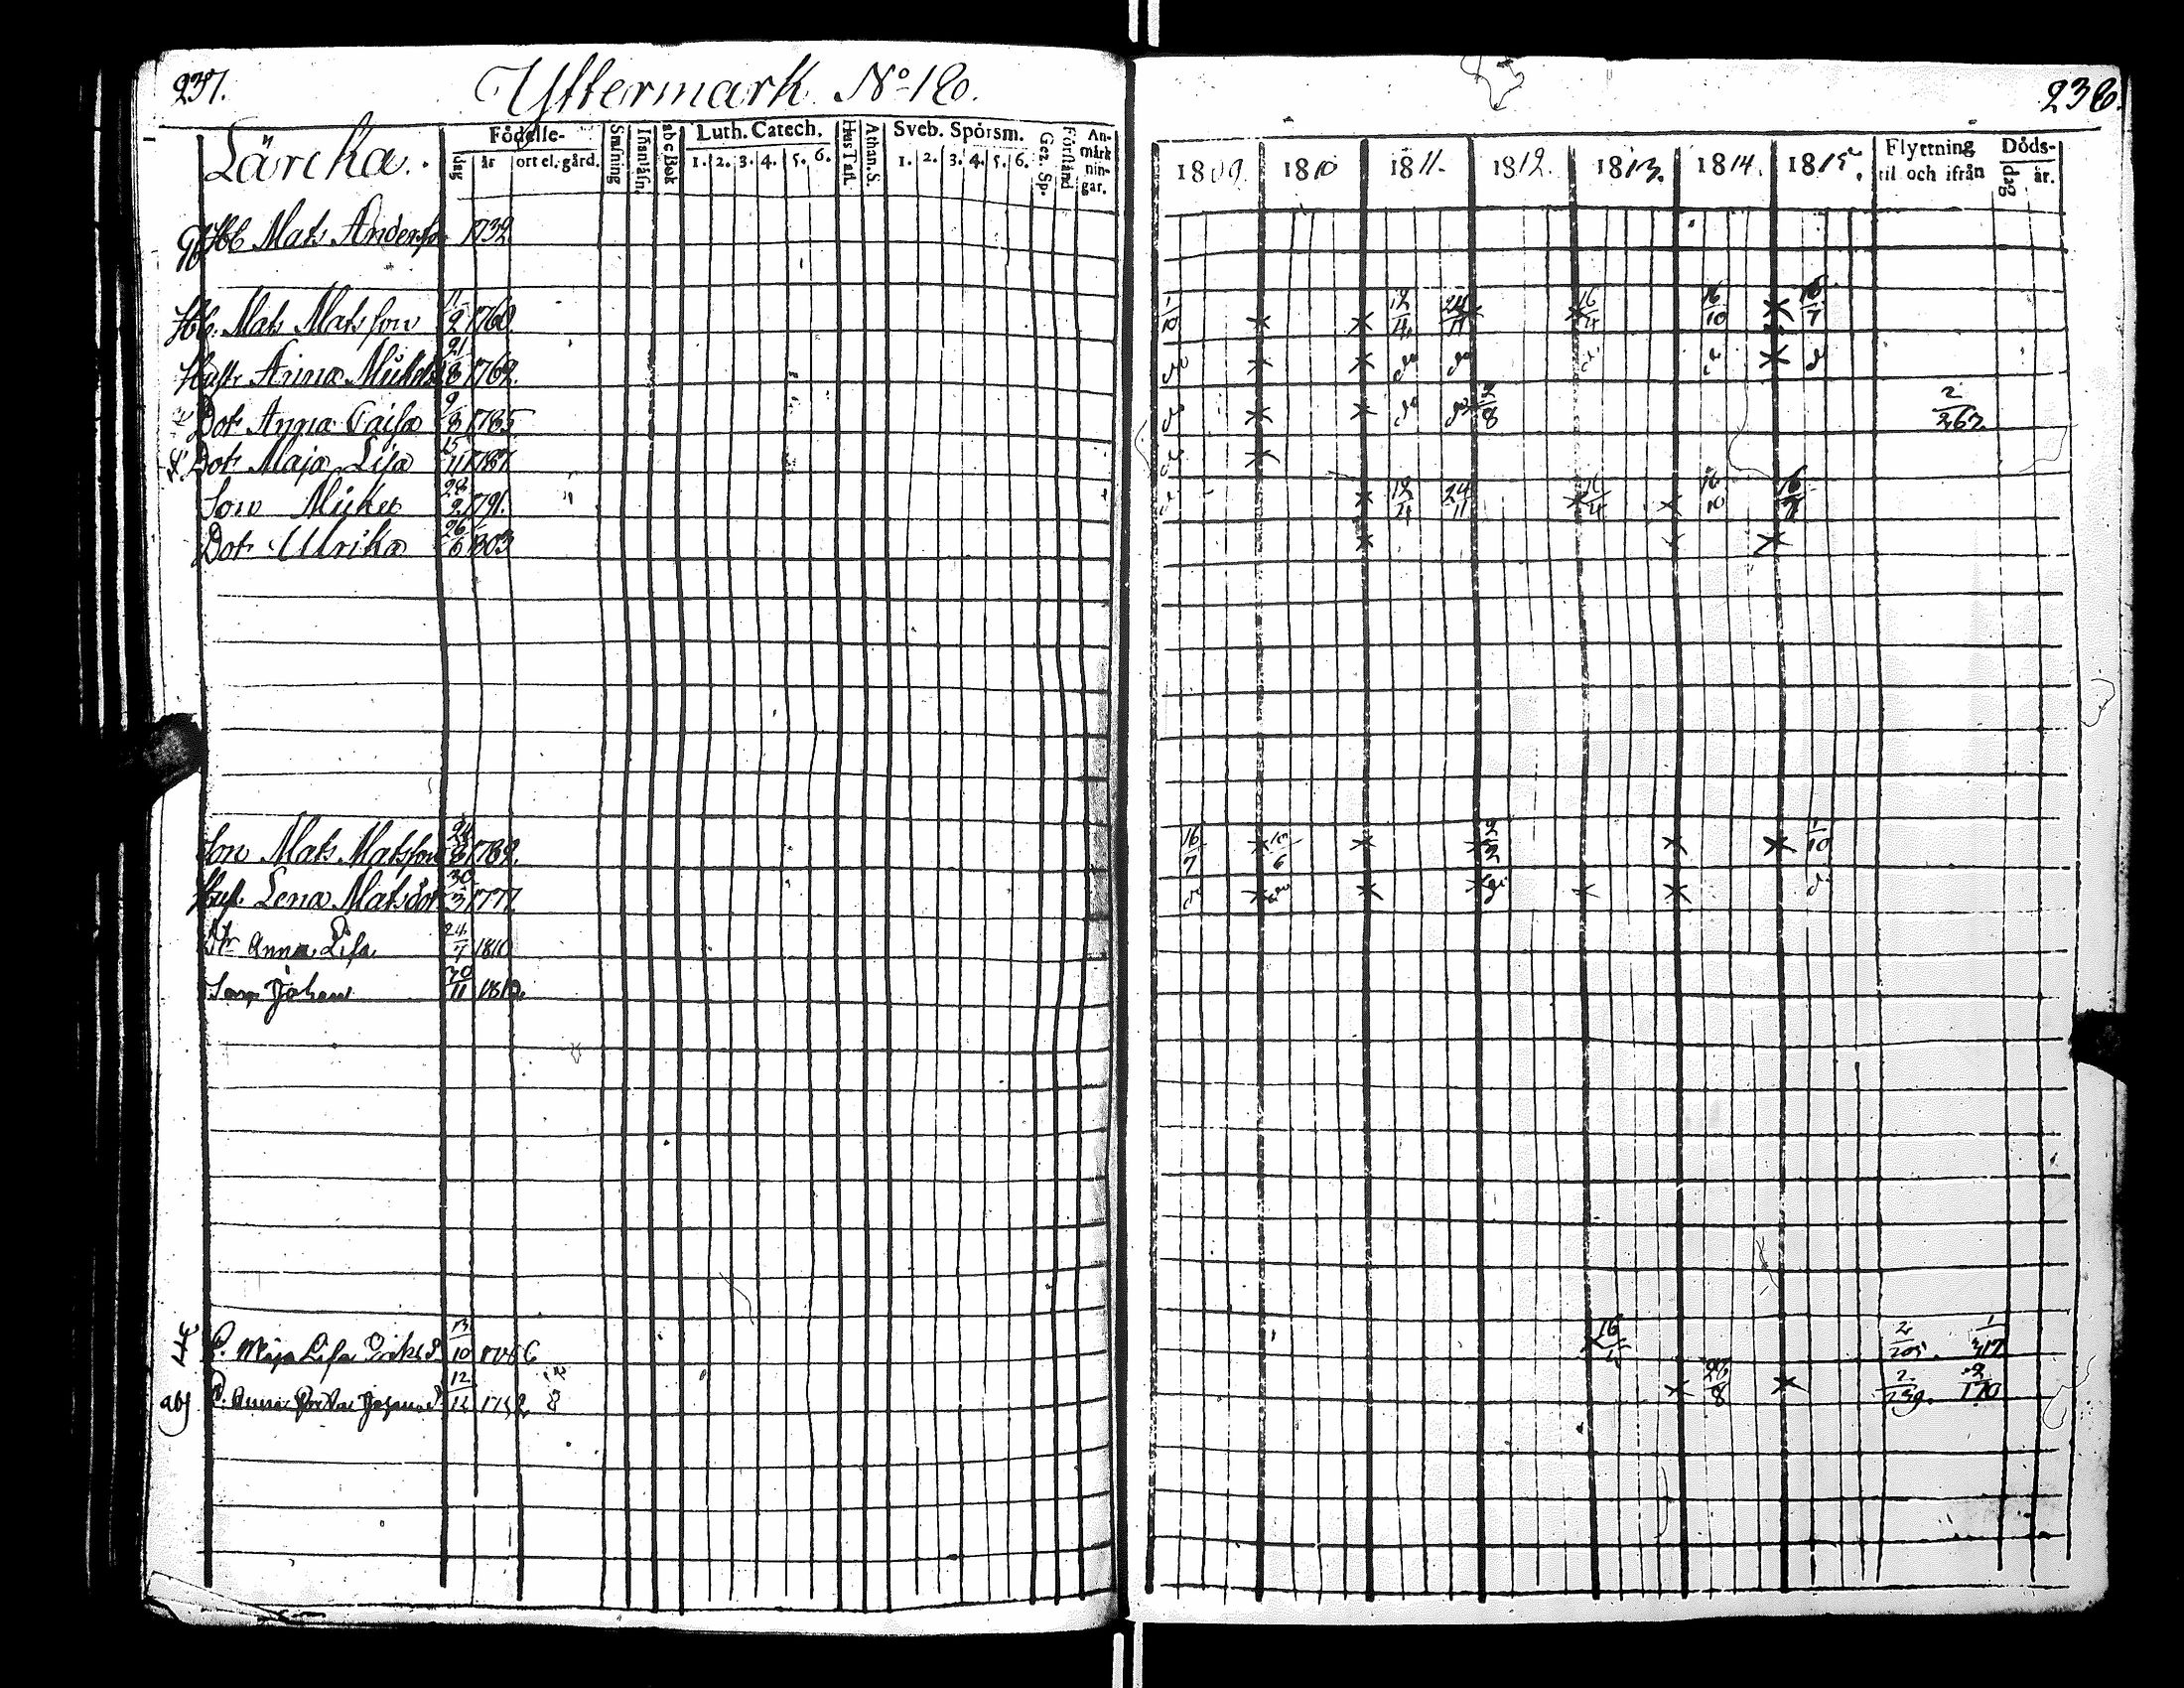 237.
Yttermark No 18.
Lärcka.
Födelse-
dag
år
ort el. gård.
abc Bok
Luth. Catech.
1. 2. 3. 4. 5. 6.
Hus Tafl.
Athan. S.
Sveb. Spörsm.
1. 2. 3. 4. 5. 6.
Gez. Sp.
Förstånd
An-
märk
nin-
gar.
Mats Andersson 1732
Mats Matsson 11/2 1760
Hustr Anna 21/8 1762.
Dotr Anna Caisa 9/8 1785
Dotr Maja Lisa 15/11 1787
Son Mickel 28/2 1791.
Dotr Ulrika 26/6 1803
Son Mats Matsson 24/8 1782.
Hust. Lena Matsdotr 30/3 1777.
Dtr Anna Lisa 24/7 1810
Son Johan 30/11 1812.
P. Maja Lisa Eriks D. 13/10
P. Anna 12/12
238.
1809 1810 1811. 1812. 1813. 1814. 1815.
Flyttning
til och ifrån
Döds-
dag
år.
1/10 12/4 24/11 16/4 16/10 16/7
do do do
do do 2/8 2/267
12/4 24/11 16/4 16/10 16/7
16/7 1/10
16/4 2/205. 1/317
28/8 2/239. 2/170